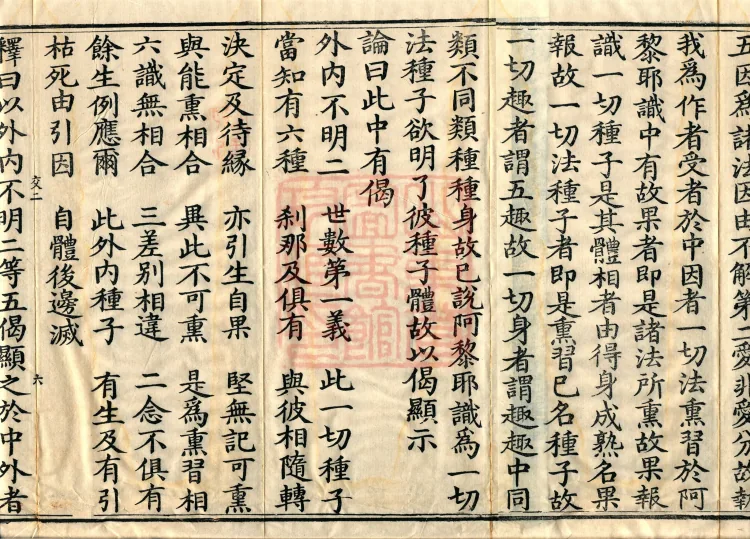 五因爲諸法因由不解第二愛非愛分故報
我爲作者受者於中因者一切法熏習於阿
黎耶識中有故果者即是諸法所熏故果報
識一切種子是其體相者由得身成熟名果
報故一切法種子者即是熏習已名種子故
一切趣者謂五趣故一切身者謂趣趣中同
類不同類種種身故已說阿黎耶識爲一切
法種子欲明了彼種子體故以偈顯示
論曰此中有偈
外内不明二 世數第一義 此一切種子
當知有六種 刹那及俱有 與彼相隨轉
決定及待緣 亦引生自果 堅無記可熏
與能熏相合 異此不可熏 是爲熏習相
六識無相合 三差別相違 二念不俱有
餘生例應爾 此外内種子 有生及有引
枯死由引因 自體後邊滅
交二 六
釋曰以外内不明二等五偈顯之於中外者